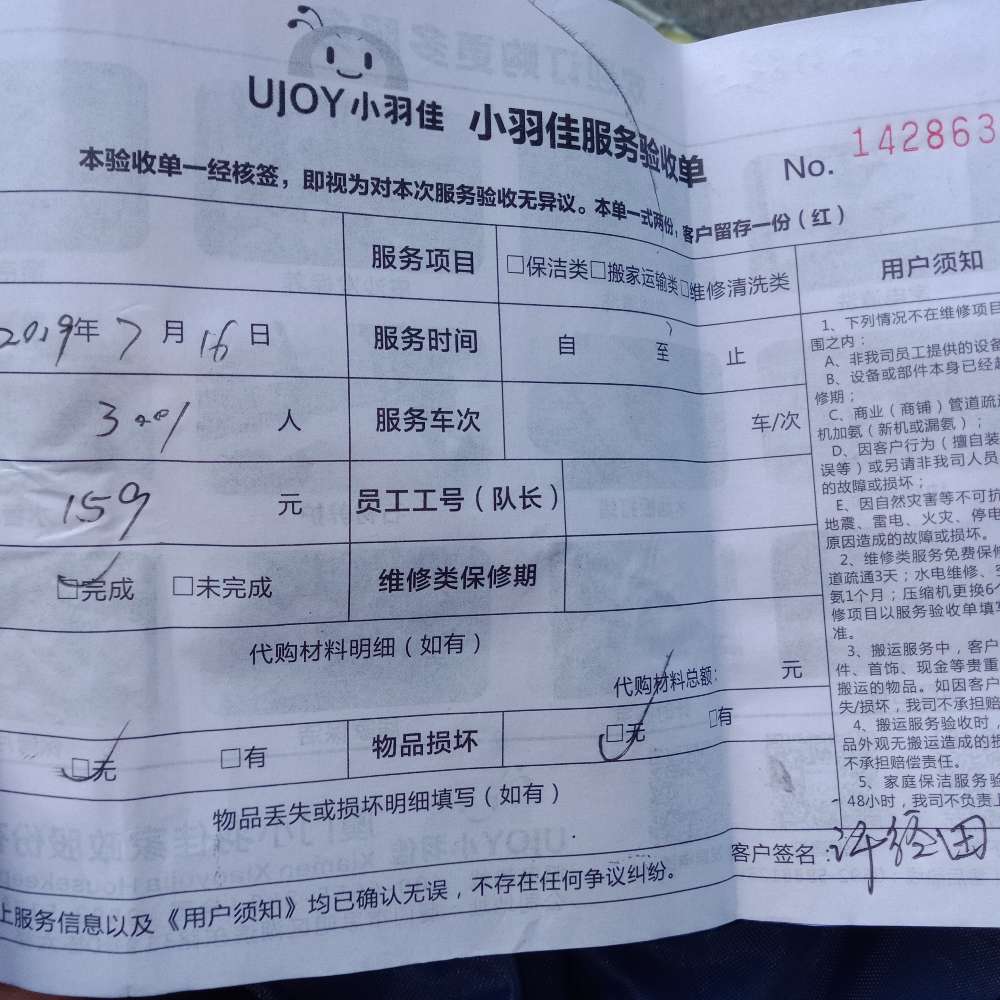 UJOY小羽佳 小羽佳服务验收单 No. 142863
本验收单一经核签，即视为对本次服务验收无异议。本单一式两份，客户留存一份（红）
服务项目 □保洁类□搬家运输类□维修清洗类
2019年7月16日 服务时间 自 至 止
人 服务车次 车/次
159 元 员工工号（队长）
□完成 □未完成 维修类保修期
代购材料明细（如有）
代购材料总额： 元
□无 □有 物品损坏 □无 □有
物品丢失或损坏明细填写（如有）
上服务信息以及《用户须知》均已确认无误，不存在任何争议纠纷。
用户须知
1、下列情况不在维修项目
围之内：
A、非我司员工提供的设备
B、设备或部件本身已经超
修期；
C、商业（商铺）管道疏通
机加氨（新机或漏氨）；
D、因客户行为（擅自装
误等）或另请非我司人员
的故障或损坏；
E、因自然灾害等不可抗
地震、雷电、火灾、停电
原因造成的故障或损坏。
2、维修类服务免费保修
道疏通3天；水电维修、空
氨1个月；压缩机更换6个
修项目以服务验收单填写
准。
3、搬运服务中，客户
件、首饰、现金等贵重
搬运的物品。如因客户
失/损坏，我司不承担赔
4、搬运服务验收时，
品外观无搬运造成的损
不承担赔偿责任。
5、家庭保洁服务验
48小时，我司不负责上
客户签名：许经田